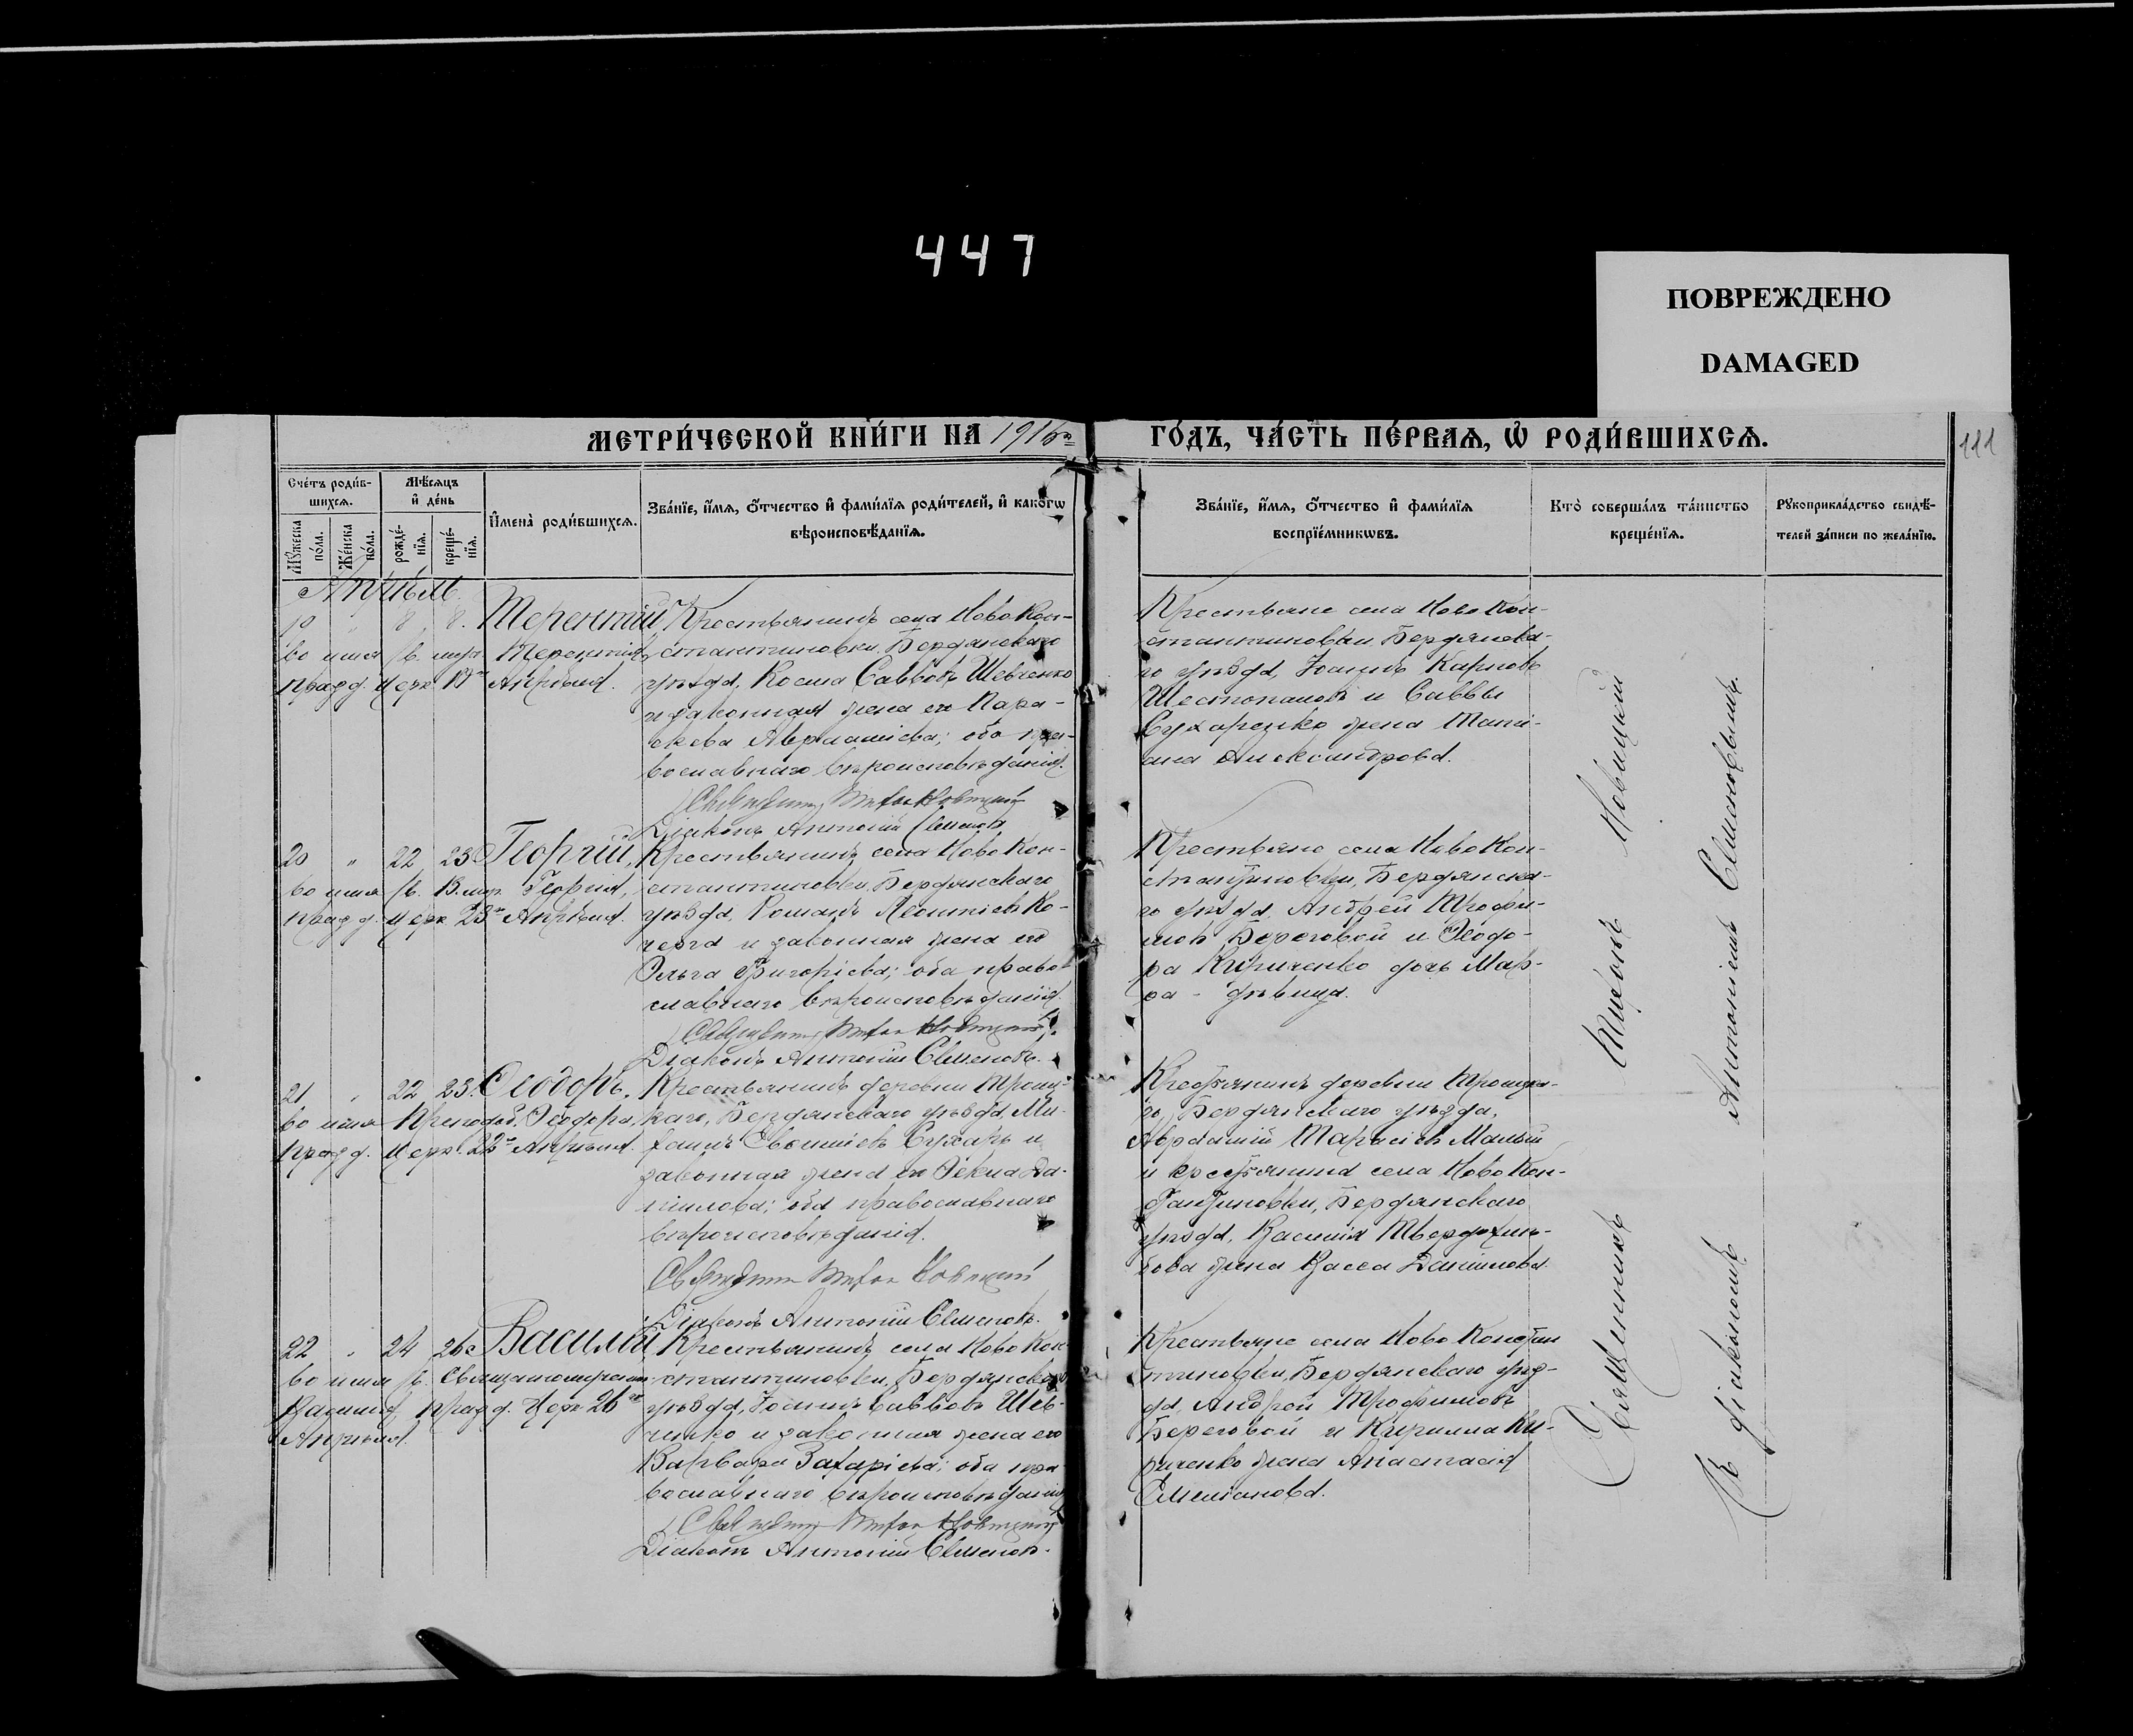 447
ПОВРЕЖДЕНО
DAMAGED
МЕТРИ́ЧЕСКОЙ КНИ́ГИ НА 1916 го́дъ, ча́сть пе́рваѧ, ѡ҆ роди́вшихсѧ.
111
Сче́тъ роди́в-
шихсѧ.
Мꙋжеска
по́ла.
Же́нска
по́ла.
Мѣ́сѧцъ
и҆ де́нь
рожде́-
нїѧ.
креще́-
нїѧ.
И҆мена̀ роди́вшихсѧ.
Зва́нїе, и҆́мѧ, ѻ҆́тчество и҆ фами́лїѧ роди́телей, и҆ како́гѡ
вѣроисповѣ́данїѧ.
Зва́нїе, и҆́мѧ, ѻ҆́тчество и҆ фами́лїѧ
воспрїе́мникѡвъ.
Кто̀ соверша́лъ та́инство
креще́нїѧ.
Рꙋкоприкла́дство свидѣ́-
телей за́писи по жела́нїю.
Апрѣль.
19 " 8. 8. Терентій
во имя св. муч. Терентія,
празд. церк. 10го Апрѣля.
Крестьянинъ села Ново Кон-
стантиновки, Бердянскаго
уѣзда, Косма Саввовъ Шевченко
и законная жена его Пара-
скева Авраамієва; оба пра-
вославнаго вѣроисповѣданія.
Священникъ Новицкій
Діаконъ Антоній Семеновъ
Крестьяне села Ново Кон-
стантиновки, Бердянска-
го уѣзда, Іоаннъ Карповъ
Шестопаловъ и Саввы
Сухаренко жена Тати-
ана Александрова.
20 " 22 23 Георгій,
во имя св. В. муч. Георгія,
празд. церк. 23го Апрѣля.
Крестьянинъ села Ново Кон-
стантиновки, Бердянскаго
уѣзда, Романъ Леонтіевъ Ко-
черга и законная жена его
Ольга Григоріева; оба право-
славнаго вѣроисповѣданія.
Священникъ Новицкій
Діаконъ Антоній Семеновъ.
Крестьяне села Ново Кон-
стантиновки, Бердянска-
го уѣзда, Андрей Трофи-
мовъ Береговой и Ѳеодо-
ра Кириченко дочь Мар-
ѳа - дѣвица.
21 " 22 23. Ѳеодоръ,
во имя Преподоб. Ѳеодора,
празд. церк. 22го Апрѣля.
Крестьянинъ деревни Троиц-
каго, Бердянскаго уѣзда, Ми-
хаилъ Сухарь и
законная жена его Ѳекла Да-
ніилова; оба православнаго
вѣроисповѣданія.
Священникъ Новицкій
Діаконъ Антоній Семеновъ.
Крестьянинъ деревни Троицка-
го, Бердянскаго уѣзда,
Авраамій Тарасіевъ Малый
и крестьянина села Ново Кон-
стантиновки, Бердянскаго
уѣзда, Василія Твердохлѣ-
бова жена Васса Даніилова.
22 " 24 26 Василій
во имя св. Священномученика
Василія, празд. церк. 26го
Апрѣля.
Крестьянинъ села Ново Кон-
стантиновки, Бердянскаго
уѣзда, Іоаннъ Саввовъ Шев-
ченко и законная жена его
Варвара Захаріева; оба пра-
вославнаго вѣроисповѣданія
Священникъ Новицкій
Діаконъ Антоній Семеновъ.
Крестьяне села Ново Констан-
тиновки, Бердянскаго уѣз-
да, Андрей Трофимовъ
Береговой и Кирилла Ки-
риченко жена Анастасія
Емеліанова.
Священникъ Новицкій
съ діакономъ Антоніемъ Семеновымъ.